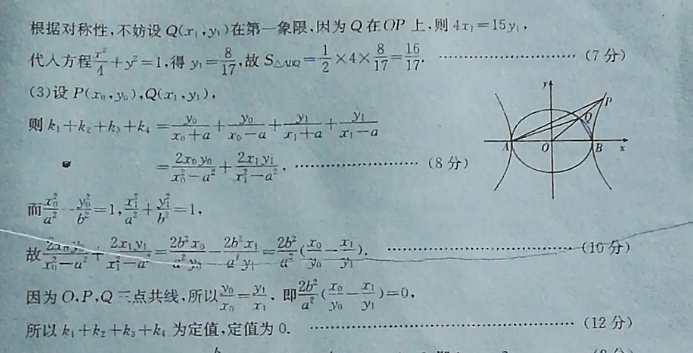 根据对称性,不妨设 Q(x₁,y₁)在第一象限,因为 Q 在 OP 上,则 4x₁=15y₁,
代入方程x²/4+y²=1,得 y₁=8/17,故 S△ABQ=1/2×4×8/17=16/17. ……………… (7 分)
(3)设 P(x₀,y₀),Q(x₁,y₁),
则 k₁+k₂+k₃+k₄=y₀/(x₀+a)+y₀/(x₀-a)+y₁/(x₁+a)+y₁/(x₁-a)
=2x₀y₀/(x₀²-a²)+2x₁y₁/(x₁²-a²), ……………… (8 分)
而x₀²/a²-y₀²/b²=1,x₁²/a²+y₁²/b²=1,
故2x₀y₀/(x₀²-a²)+2x₁y₁/(x₁²-a²)=2b²x₀/a²y₀-2b²x₁/a²y₁=2b²/a²(x₀/y₀-x₁/y₁). ……………… (10 分)
因为 O,P,Q 三点共线,所以y₀/x₀=y₁/x₁, 即2b²/a²(x₀/y₀-x₁/y₁)=0,
所以 k₁+k₂+k₃+k₄ 为定值,定值为 0. ……………… (12 分)
y
P
Q
A
O
B
x